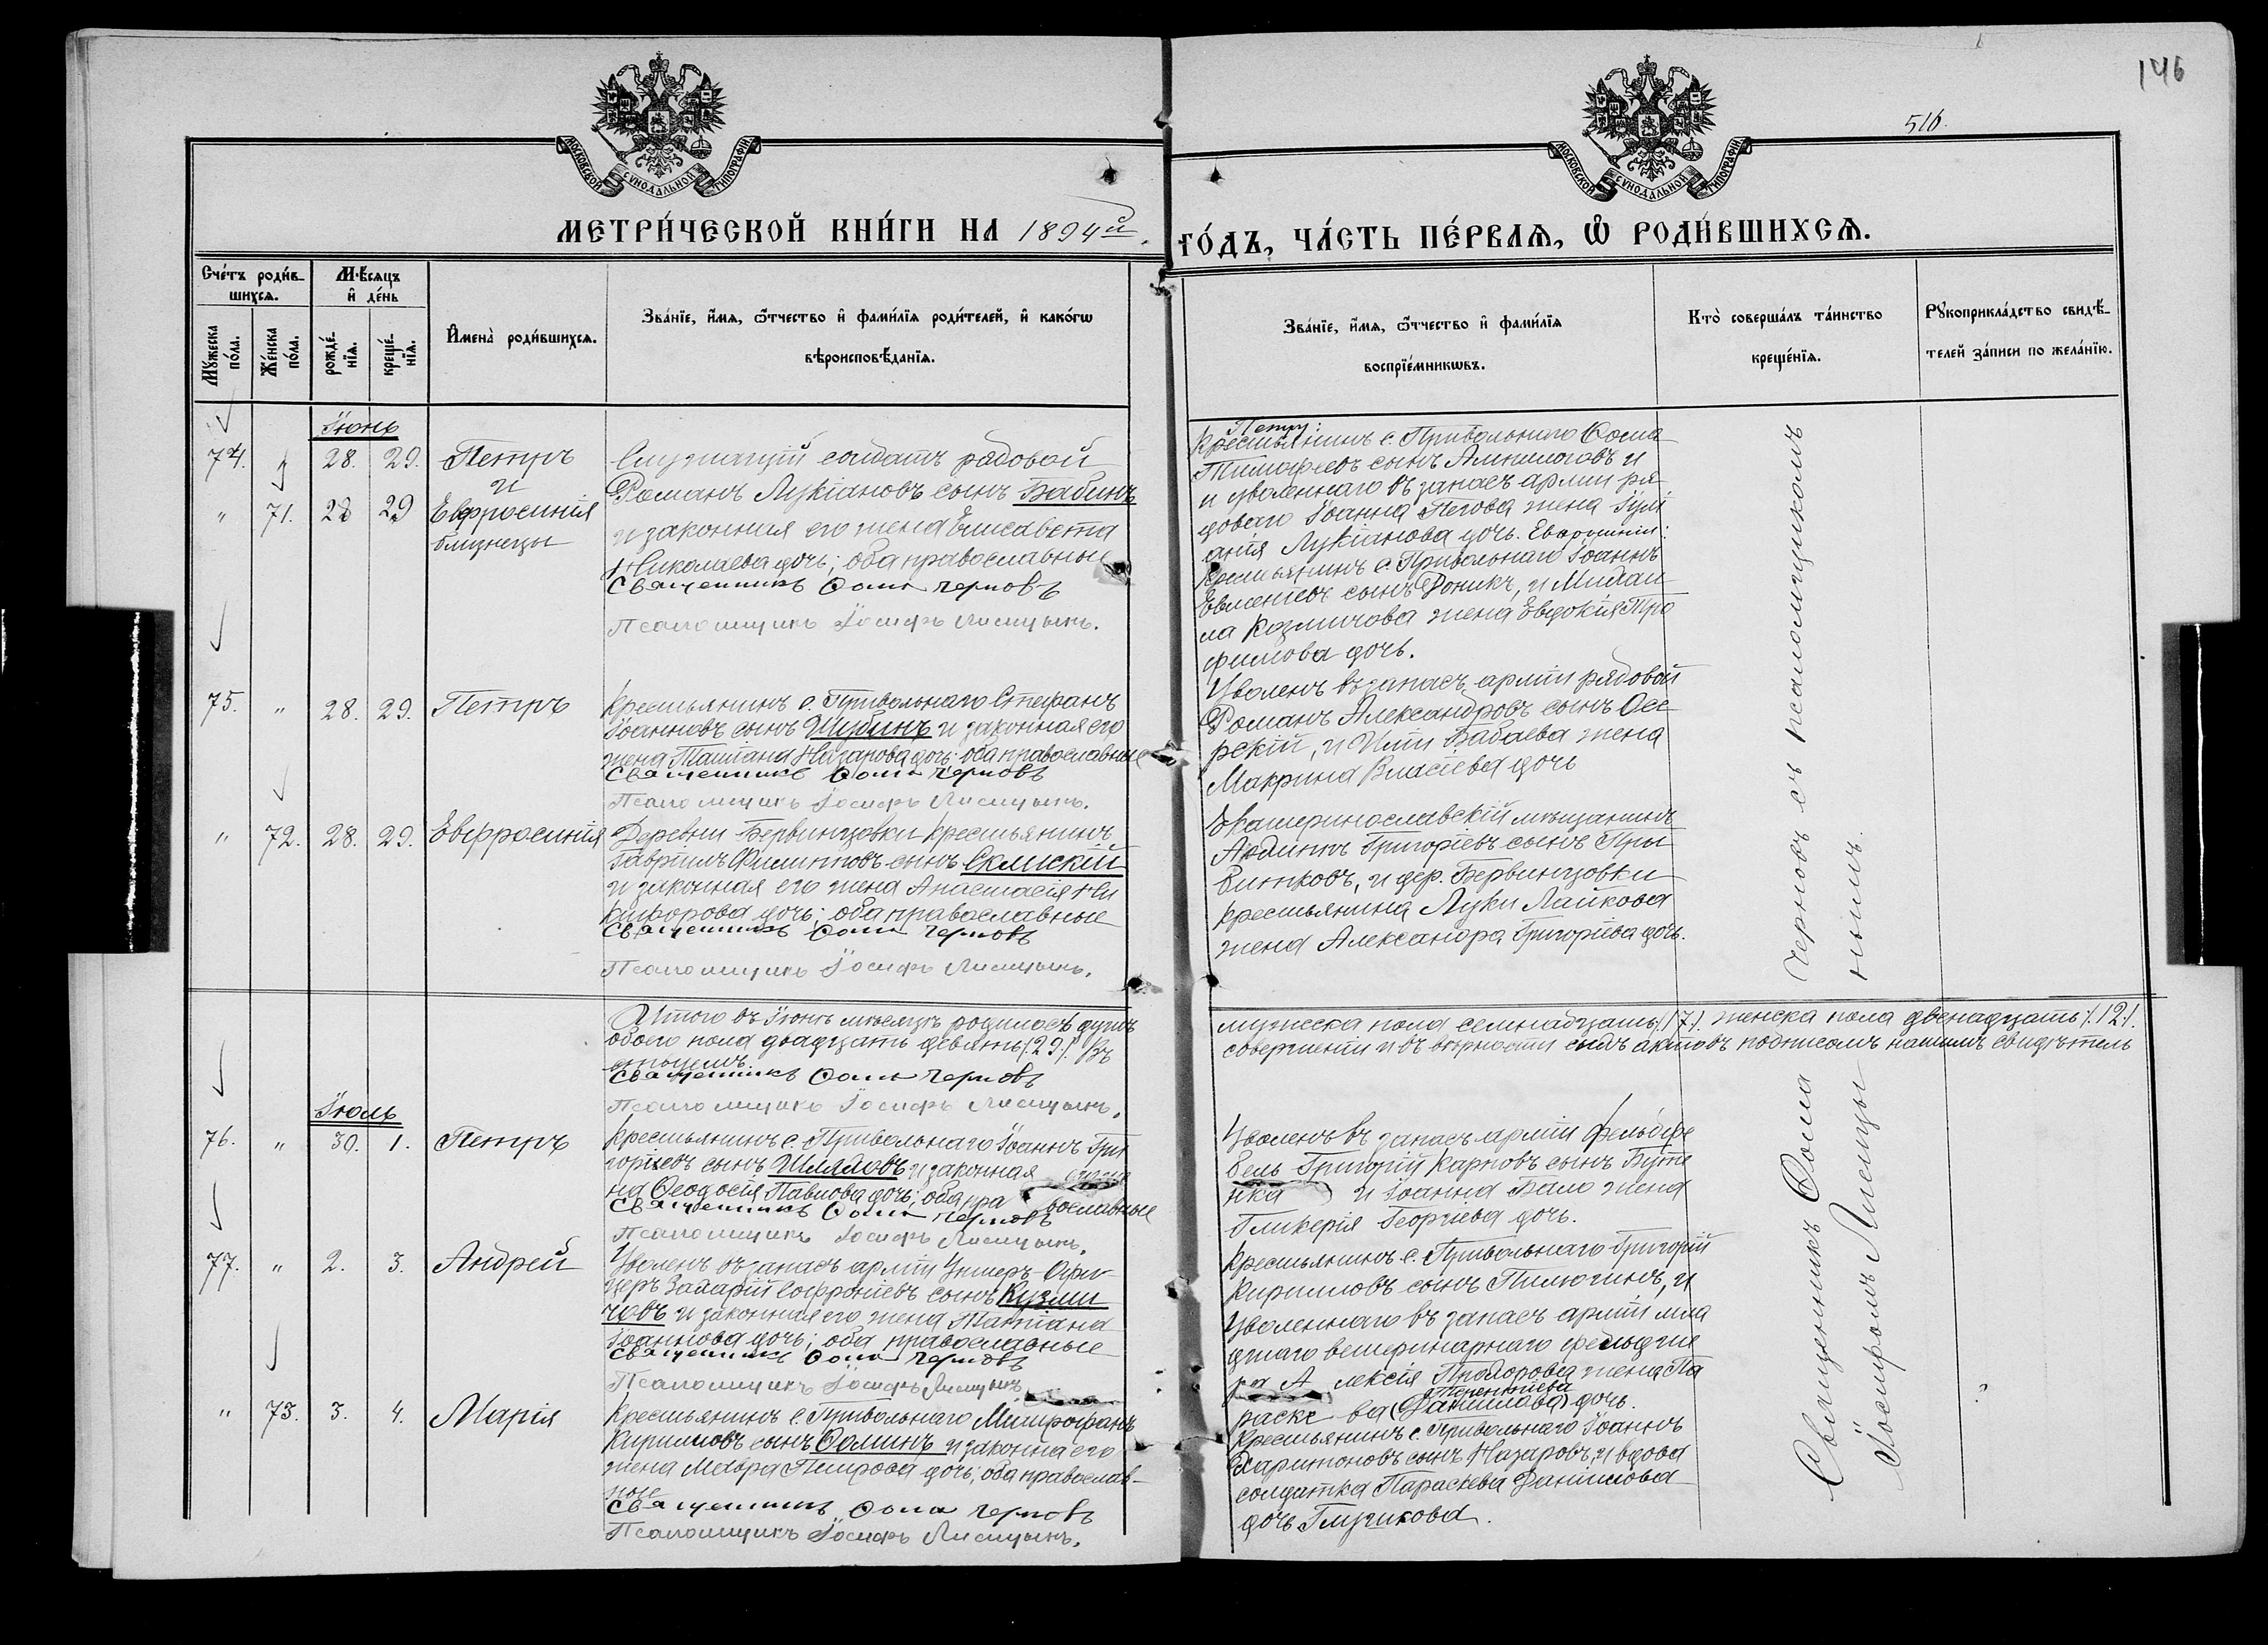 146
516.
МОСКОВСКОЙ СУНОДАЛЬНОЙ ТИПОГРАФІИ
МОСКОВСКОЙ СУНОДАЛЬНОЙ ТИПОГРАФІИ
МЕТРИ́ЧЕСКОЙ КНИ́ГИ НА 1894й
ГО́ДЪ, ЧА́СТЬ ПЕ́РВАѦ, Ѡ РОДИ́ВШИХСѦ.
Сче́тъ роди́в-
шихсѧ.
Мꙋ́жеска по́ла.
Же́нска по́ла.
Мѣ́сяцъ
и де́нь
рожде́-
нїѧ.
креще́-
нїѧ.
Имена̀ роди́вшихсѧ.
Зва́нїе, и́мѧ, ѻ́тчество и фами́лїѧ роди́телей, и како́гѡ
вѣроисповѣ́данїѧ.
Зва́нїе, и́мѧ, ѻ́тчество и фами́лїѧ
воспрїе́мникѡвъ.
Кто̀ соверша́лъ та́инство
креще́нїѧ.
Рꙋкоприкла́дство свидѣ́-
телей за́писи по жела́нїю.
Іюнь
74. 28. 29. Петръ
и
" 71. 28 29 Евфросинія
близнецы
Служащій солдатъ рядовой
Романъ Лукіановъ сынъ Бабинъ
и законная его жена Елисавета
Николаева дочь; оба православные
Священникъ Ѳома Черновъ
Псаломщикъ Іосифъ Лисицынъ.
Петру:
Крестьянинъ с. Привольнаго Ѳома
Тимофеевъ сынъ и
и уволеннаго въ запасъ арміи ря
доваго Іоанна Пегова жена Іулі
анія Лукіанова дочь. Евфросиніи:
Крестьянинъ с. Привольнаго Іоаннъ
Евменіевъ сынъ Доникъ, и Михаи
ла Козмичова жена Евдокія Тро
фимова дочь.
75. " 28. 29. Петръ
Крестьянинъ с. Привольнаго Стефанъ
Іоанновъ сынъ Шубинъ и законная его
жена Татіана Назарова дочь; оба православные
Священникъ Ѳома Черновъ
Псаломщикъ Іосифъ Лисицынъ.
Уволенъ въ запасъ арміи рядовой
Романъ Александровъ сынъ Осе
рскій, и Бабаева жена
Макрина Власіева дочь
" 72. 28. 29. Евфросинія
Деревни Бервинцовки крестьянинъ
Гавріилъ Филипповъ сынъ
и законная его жена Анастасія Ни
кифорова дочь; оба православные
Священникъ Ѳома Черновъ
Псаломщикъ Іосифъ Лисицынъ.
Екатеринославскій мѣщанинъ
Григоріевъ сынъ При
битковъ, и дер. Бервинцовки
крестьянина Луки Лайкова
жена Александра Григоріева дочь.
Итого въ Іюнѣ мѣсяцѣ родилось душъ
обоего пола двадцать девять /.29/. Въ
Священникъ Ѳома Черновъ
Псаломщикъ Іосифъ Лисицынъ.
мужеска пола семнадцать /.17/. женска пола двенадцать /.12/.
совершеніи и въ вѣрности сихъ актовъ подписомъ нашимъ свидѣтель
Іюль
76. " 30. 1. Петръ
Крестьянинъ с. Привольнаго Іоаннъ Гри
горіевъ сынъ Шляховъ и законная его же
на Ѳеодосія Павлова дочь; оба православные
Священникъ Ѳома Черновъ
Псаломщикъ Іосифъ Лисицынъ.
Уволенъ въ запасъ арміи фельдфе
бель Григорій Карповъ сынъ Буте
нка и Іоанна Бало жена
Гликерія Георгіева дочь.
77. " 2. 3. Андрей
Уволенъ въ запасъ арміи Унтеръ-Офи-
церъ Захарій Софроніевъ сынъ Кузми
човъ и законная его жена Татіана
Іоаннова дочь; оба православные
Священникъ Ѳома Черновъ
Псаломщикъ Іосифъ Лисицынъ
Крестьянинъ с. Привольнаго Григорій
Кирилловъ сынъ Пилюгинъ, и
Уволеннаго въ запасъ арміи мла
дшаго ветеринарнаго фельдше
ра Алексія Прохорова жена Па
раске ва (Данилова) Терентіева дочь.
" 73. 3. 4. Марія
Крестьянинъ с. Привольнаго Митрофанъ
Кирилловъ сынъ Ѳоминъ и законна его
жена Мавра Петрова дочь; оба православ-
ные
Священникъ Ѳома Черновъ
Псаломщикъ Іосифъ Лисицынъ.
Крестьянинъ с. Привольнаго Іоаннъ
Харитоновъ сынъ Назаровъ, и вдова
солдатка Параскева Даніилова
дочь Глушкова.
Священникъ Ѳома Черновъ съ псаломщикомъ
Іосифомъ Лисицы нымъ.